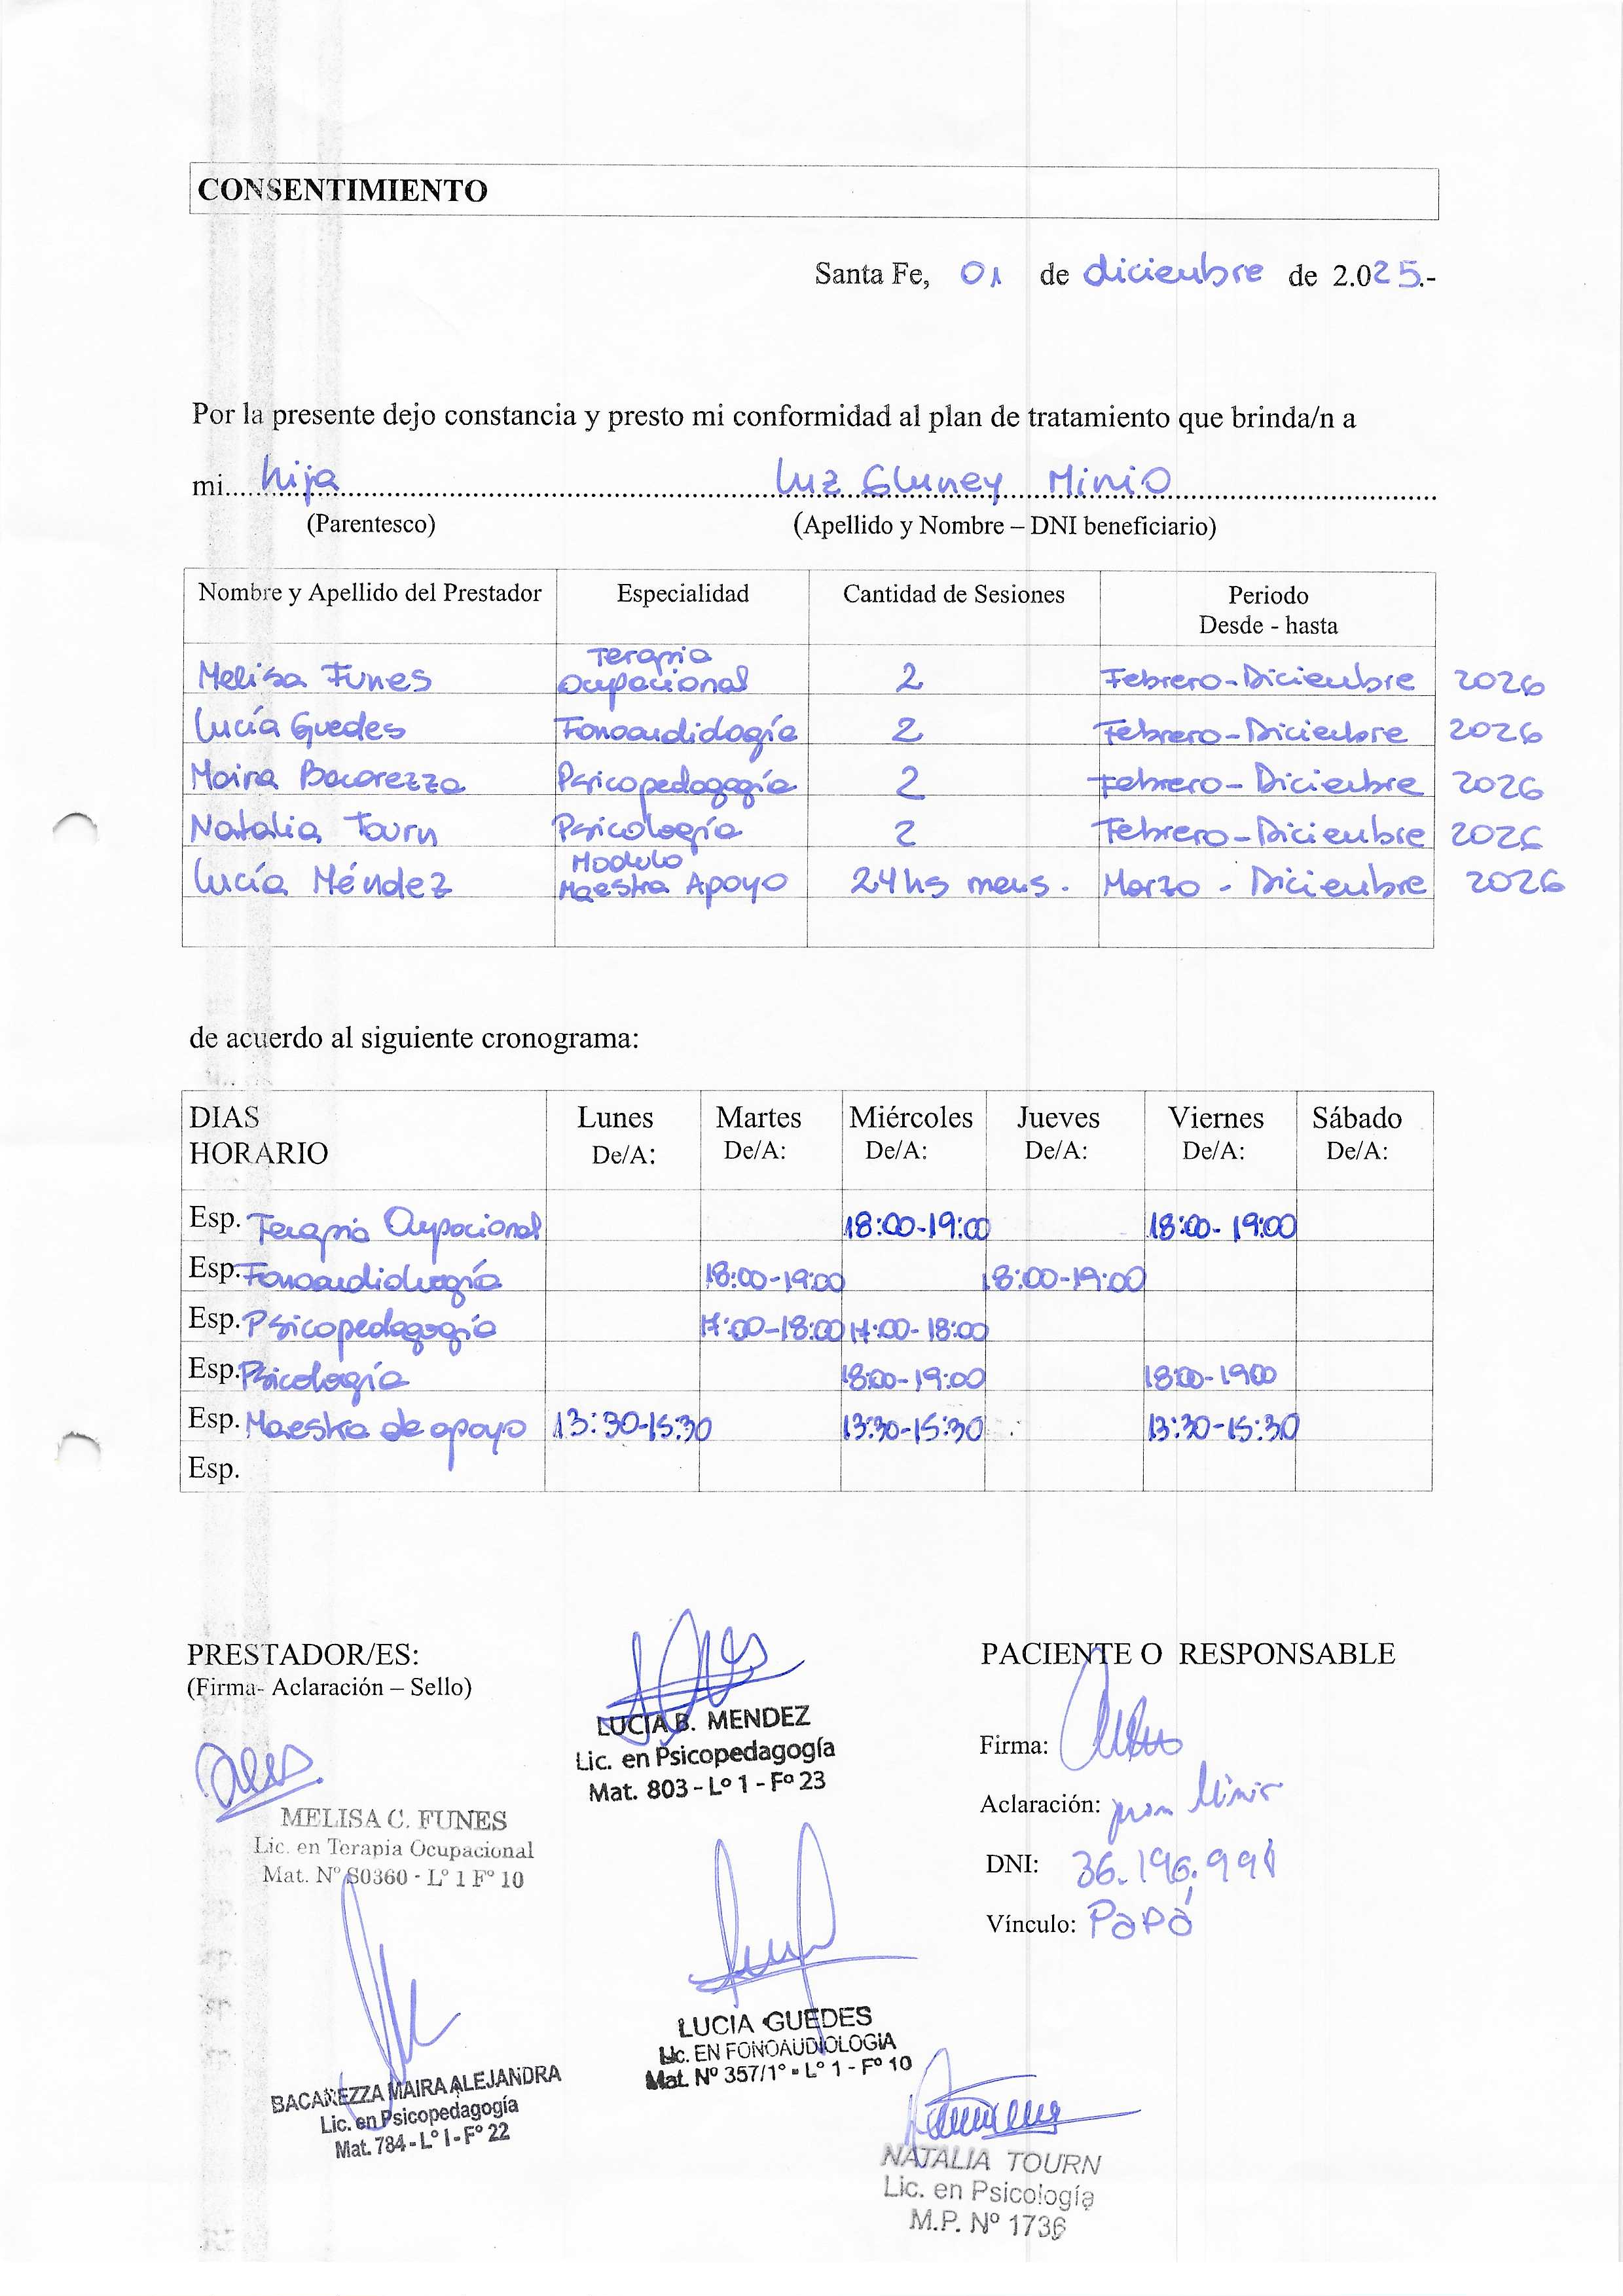 CONSENTIMIENTO
Santa Fe, 01 de diciembre de 2.025.-
Por la presente dejo constancia y presto mi conformidad al plan de tratamiento que brinda/n a
mi.... hija ........ Luz Gluney Minio ........
(Parentesco) (Apellido y Nombre – DNI beneficiario)
Nombre y Apellido del Prestador Especialidad Cantidad de Sesiones Periodo
Desde - hasta
Melisa Funes Terapia Ocupacional 2 Febrero-Diciembre 2026
Lucía Guedes Fonoaudiología 2 Febrero-Diciembre 2026
Maira Bacarezza Psicopedagogía 2 Febrero-Diciembre 2026
Natalia Tourn Psicología 2 Febrero-Diciembre 2026
Lucía Méndez Modulo Maestra Apoyo 24 hs mens. Marzo - Diciembre 2026
de acuerdo al siguiente cronograma:
DIAS Lunes Martes Miércoles Jueves Viernes Sábado
HORARIO De/A: De/A: De/A: De/A: De/A: De/A:
Esp. Terapia Ocupacional 18:00-19:00 18:00-19:00
Esp. Fonoaudiología 18:00-19:00 18:00-19:00
Esp. Psicopedagogía 17:00-18:00 17:00-18:00
Esp. Psicología 18:00-19:00 18:00-1900
Esp. Maestra de apoyo 13:30-15:30 13:30-15:30 13:30-15:30
Esp.
PRESTADOR/ES:
(Firma- Aclaración – Sello)
LUCIA B. MENDEZ
Lic. en Psicopedagogía
Mat. 803 - Lº 1 - Fº 23
MELISA C. FUNES
Lic. en Terapia Ocupacional
Mat. Nº S0360 - Lº 1 Fº 10
PACIENTE O RESPONSABLE
Firma:
Aclaración:
DNI: 36.196.991
Vínculo: Papá
LUCIA GUEDES
Lic. EN FONOAUDIOLOGIA
Mat. Nº 357/1º - Lº 1 - Fº 10
BACAREZZA MAIRA ALEJANDRA
Lic. en Psicopedagogía
Mat. 784 - Lº I - Fº 22
NATALIA TOURN
Lic. en Psicología
M.P. Nº 1736